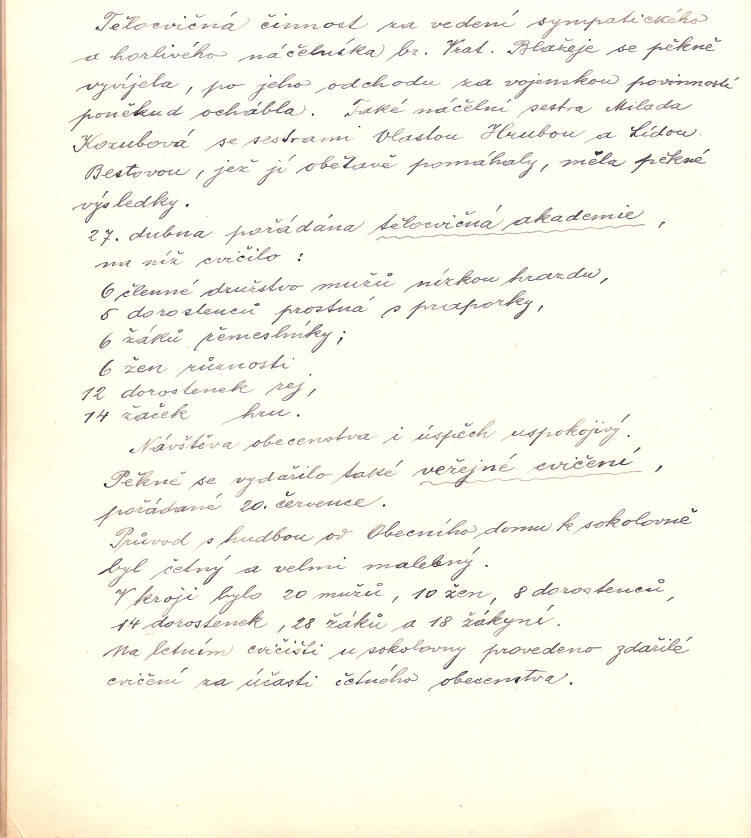 Tělocvičná činnost za vedení sympatického
a horlivého náčelníka br. Vrat. Blažeje se pěkně
vyvíjela, po jeho odchodu za vojenskou povinností
poněkud ochábla. Také náčelní sestra Milada
Kozubová se sestrami Vlastou Hrubou a Lídou
Bestovou, jež jí obětavě pomáhaly, měla pěkné
výsledky.
27. dubna pořádána tělocvičná akademie,
na níž cvičilo:
6 členné družstvo mužů nízkou hrazdu,
5 dorostenců prostná s praporky,
6 žáků řemeslníky;
6 žen různosti
12 dorostenek rej,
14 žaček hru.
Návštěva obecenstva i úspěch uspokojivý.
Pěkně se vydařilo také veřejné cvičení,
pořádané 20. července.
Průvod s hudbou od Obecního domu k sokolovně
byl četný a velmi malebný.
V kroji bylo 20 mužů, 10 žen, 8 dorostenců,
14 dorostenek, 28 žáků a 18 žákyní.
Na letním cvičišti u sokolovny provedeno zdařilé
cvičení za účasti četného obecenstva.